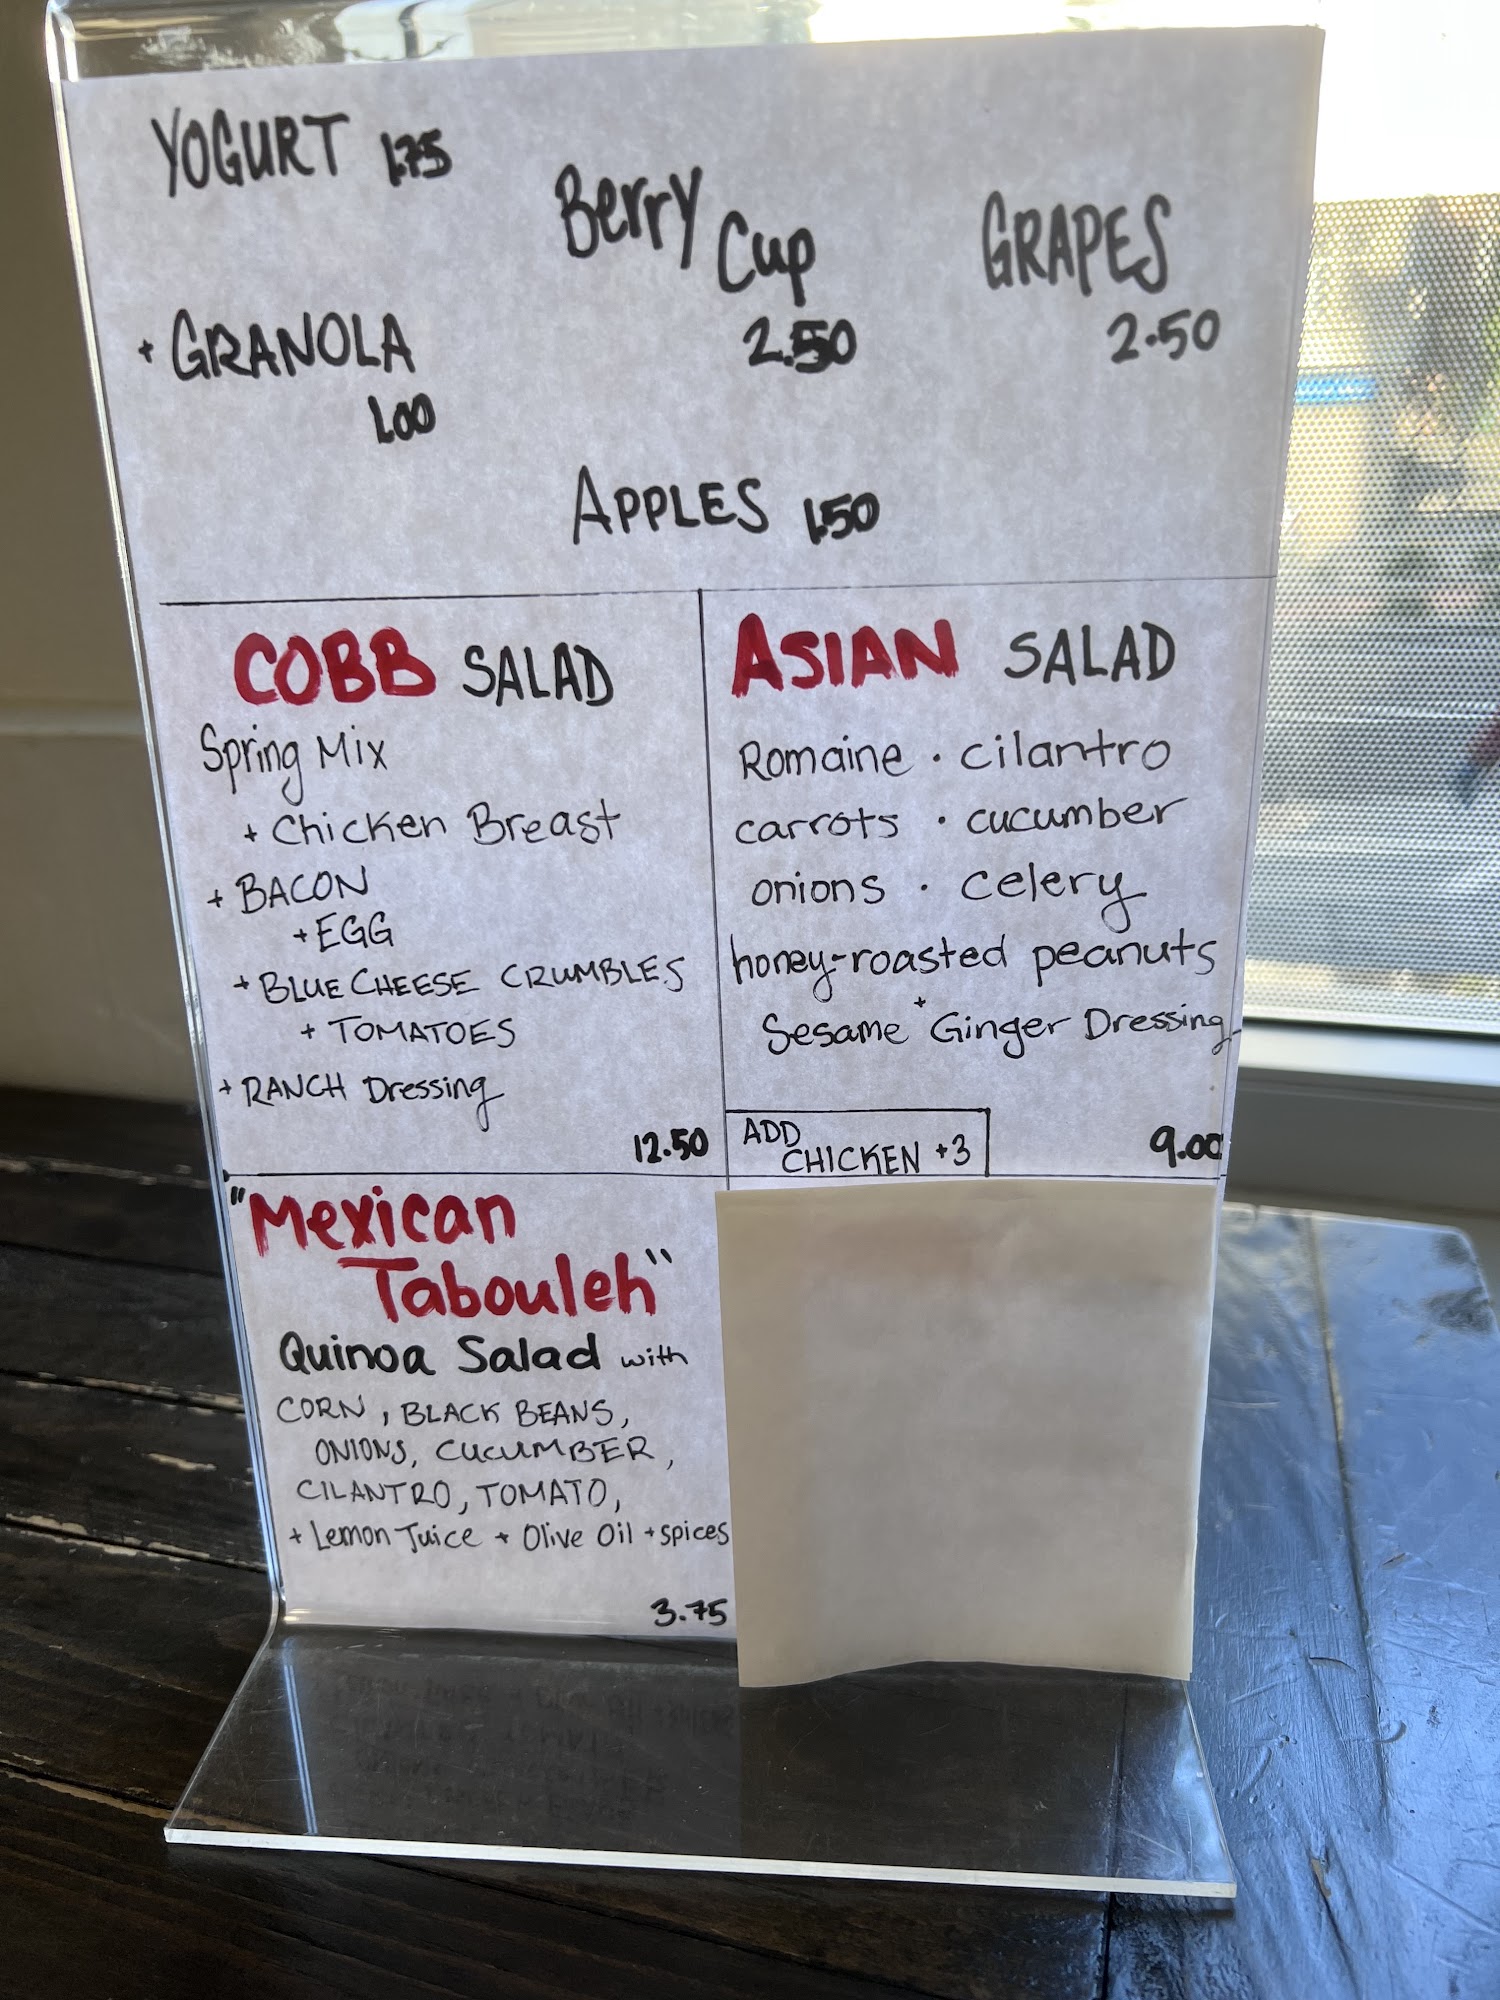 YOGURT 1.75
+ GRANOLA
1.00
Berry Cup
2.50
GRAPES
2.50
APPLES 1.50
COBB SALAD
Spring Mix
+ Chicken Breast
+ BACON
+ EGG
+ BLUE CHEESE CRUMBLES
+ TOMATOES
+ RANCH Dressing
12.50
ASIAN SALAD
Romaine · cilantro
carrots · cucumber
onions · celery
honey-roasted peanuts
Sesame + Ginger Dressing
ADD
CHICKEN +3
9.00
"Mexican
Tabouleh"
Quinoa Salad with
CORN, BLACK BEANS,
ONIONS, CUCUMBER,
CILANTRO, TOMATO,
+ Lemon Juice + Olive Oil + spices
3.75